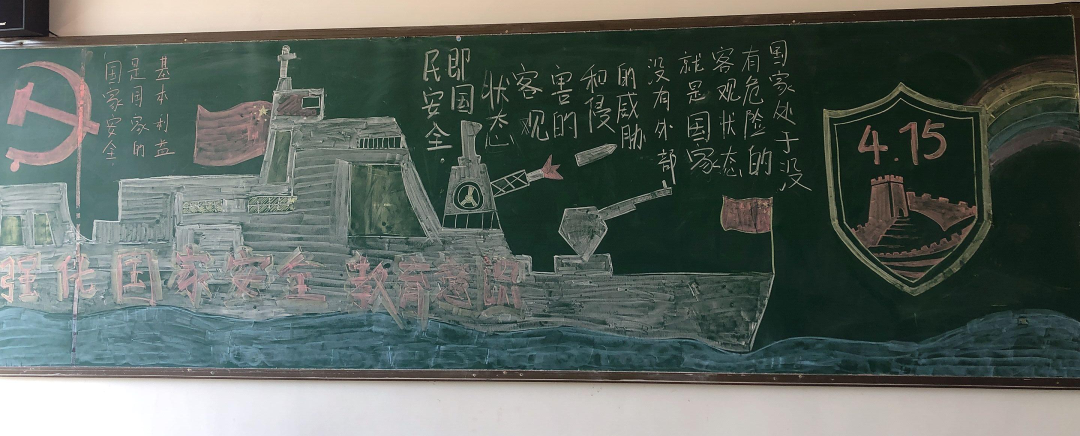 4.15
国家处于没
有危险的
客观状态
就是国家
没有外部
的威胁
和侵
害的
客观
状态
即国
民安全.
基本利益
是国家的
国家安全.
强化国家安全 教育意识